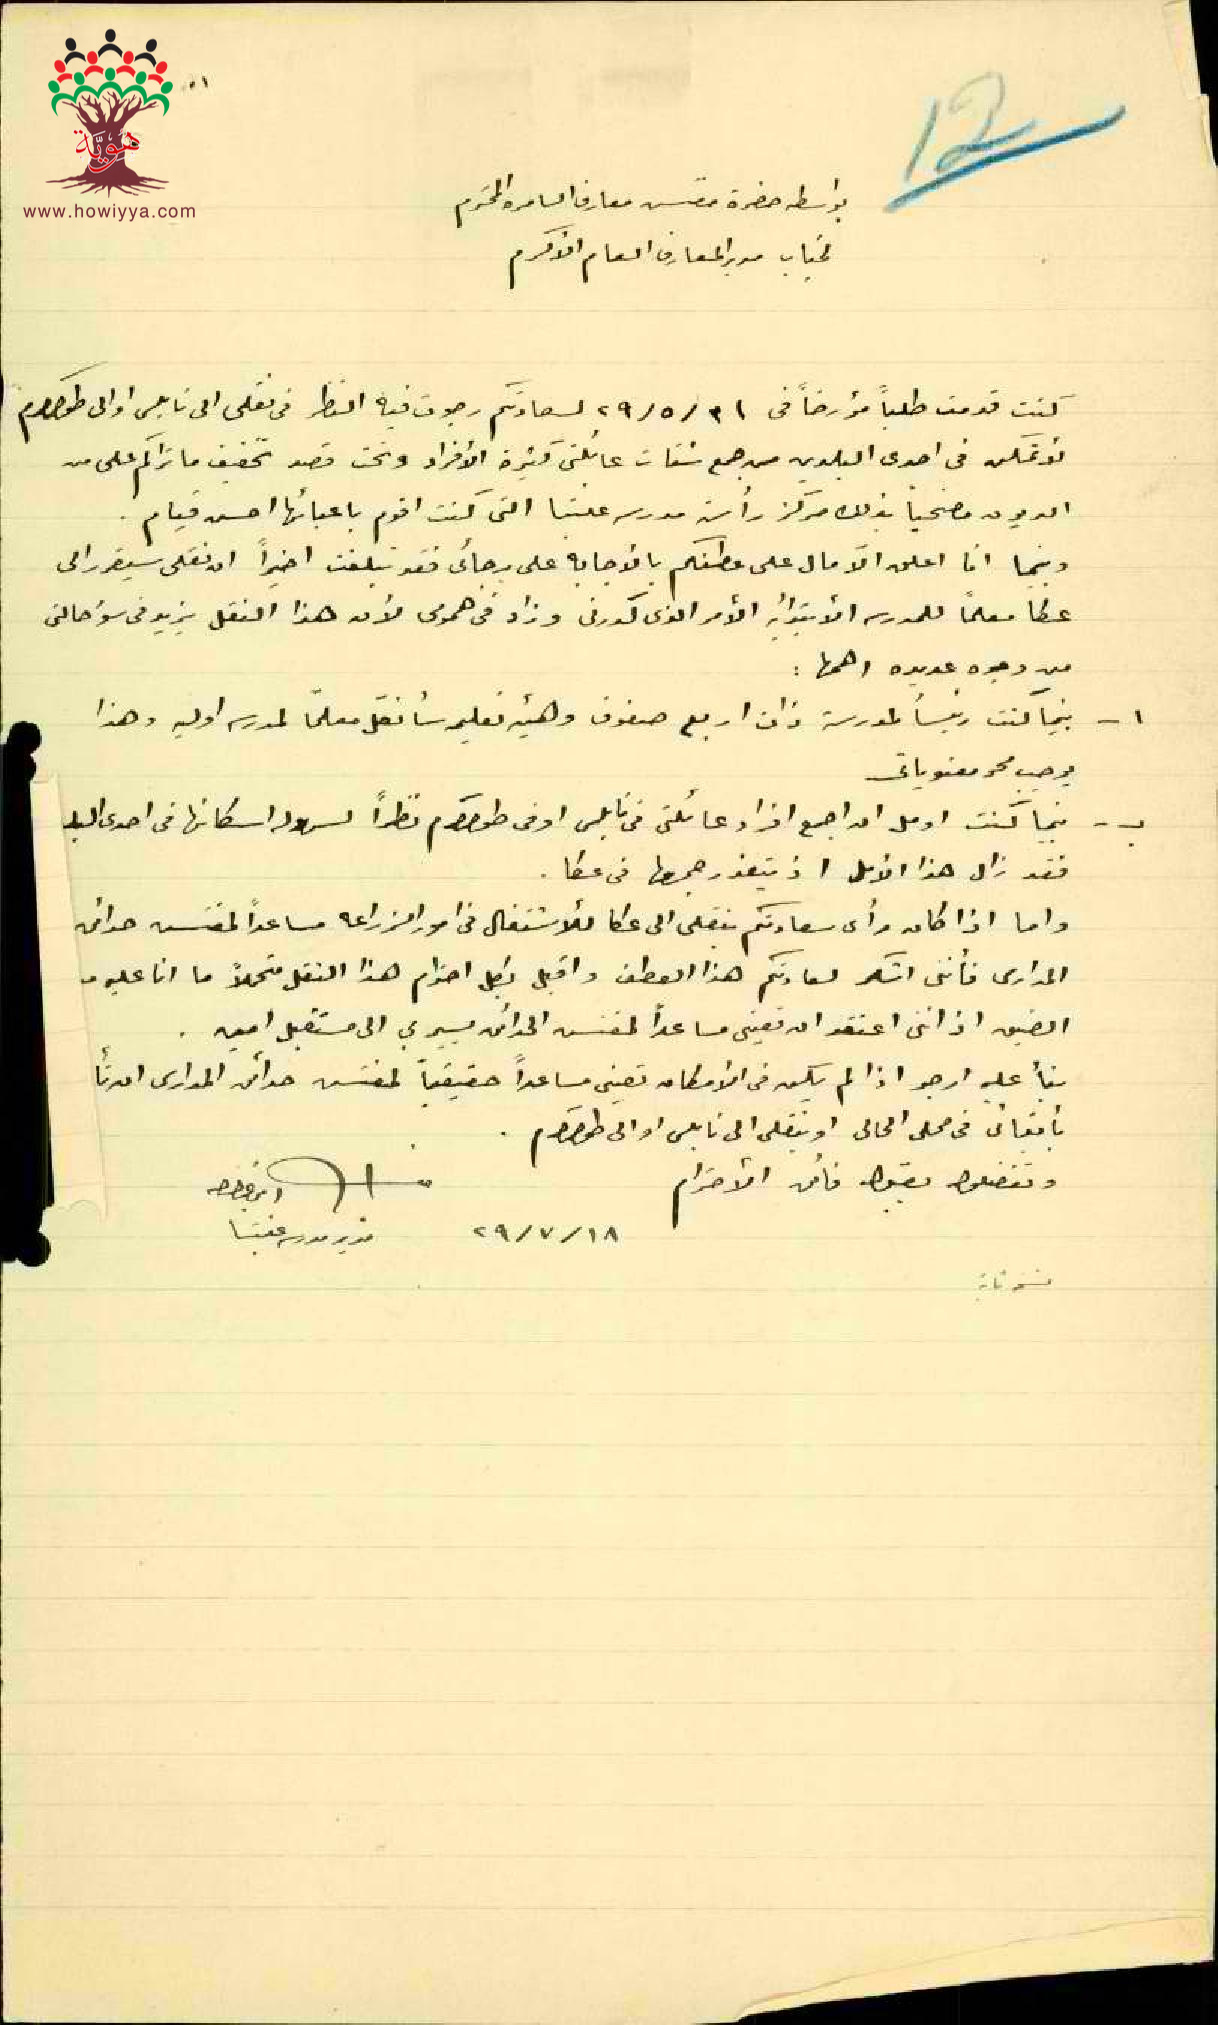 هوية
www.howiyya.com
12
بواسطه حضرة مفتش معارف السامره المحترم
لجناب مدير المعارف العام الاكرم
كنت قدمت طلباً مؤرخاً في ٣١/٥/٢٩ لسعادتكم رجوت فيه النظر في نقلي الى نابلس او الى طولكرم
لأتمكن في احدى البلدين من جمع شتات عائلتي كثيرة الافراد وتحت قصد تخفيف ما تراكم علي من
الديون مضحياً بذلك مركز رأسة مدرسه عنبتا التي كنت اقوم باعبائها احسن قيام .
وبينما انا اعلق الآمال على عطفكم بالاجابه على رجائي فقد تبلغت اخيراً ان نقلي سيتقرر الى
عكا معلماً للمدرسه الابتدائيه الأمر الذي كدرني وزاد في همومي لأن هذا النقل يزيد في سؤ حالتي
من وجوه عديده اهمها :
١ - بينما كنت رئيساً لمدرسة ذات اربع صفوف وهيئة تعليم سأنقل معلماً لمدرسه اوليه وهذا
يوجب محو معنوياتي
ب - بينما كنت اومل ان اجمع افراد عائلتي في نابلس او في طولكرم نظراً لسهولة اسكانها في احدى البلد
فقد زال هذا الأمل اذ يتعذر جمعها في عكا .
واما اذا كان رأى سعادتكم بنقلي الى عكا للأشتغال في امور الزراعه مساعداً لمفتش حدائق
المدارس فأنني اشكر لسعادتكم هذا العطف واقبل بكل احترام هذا النقل متحملاً ما انا عليه من
الضيق اذ انني اعتقد ان تعييني مساعداً لمفتش الحدائق يسير بي الى مستقبل امين .
بناء عليه ارجو اذا لم يكن في الأمكان تعييني مساعداً حقيقياً لمفتش حدائق المدارس ان
بأبقائي في محلي الحالي او بنقلي الى نابلس او الى طولكرم .
وتفضلوا بقبول فائق الأحترام
١٨/٧/٢٩
مدير مدرسه عنبتا
نسخه ثانية